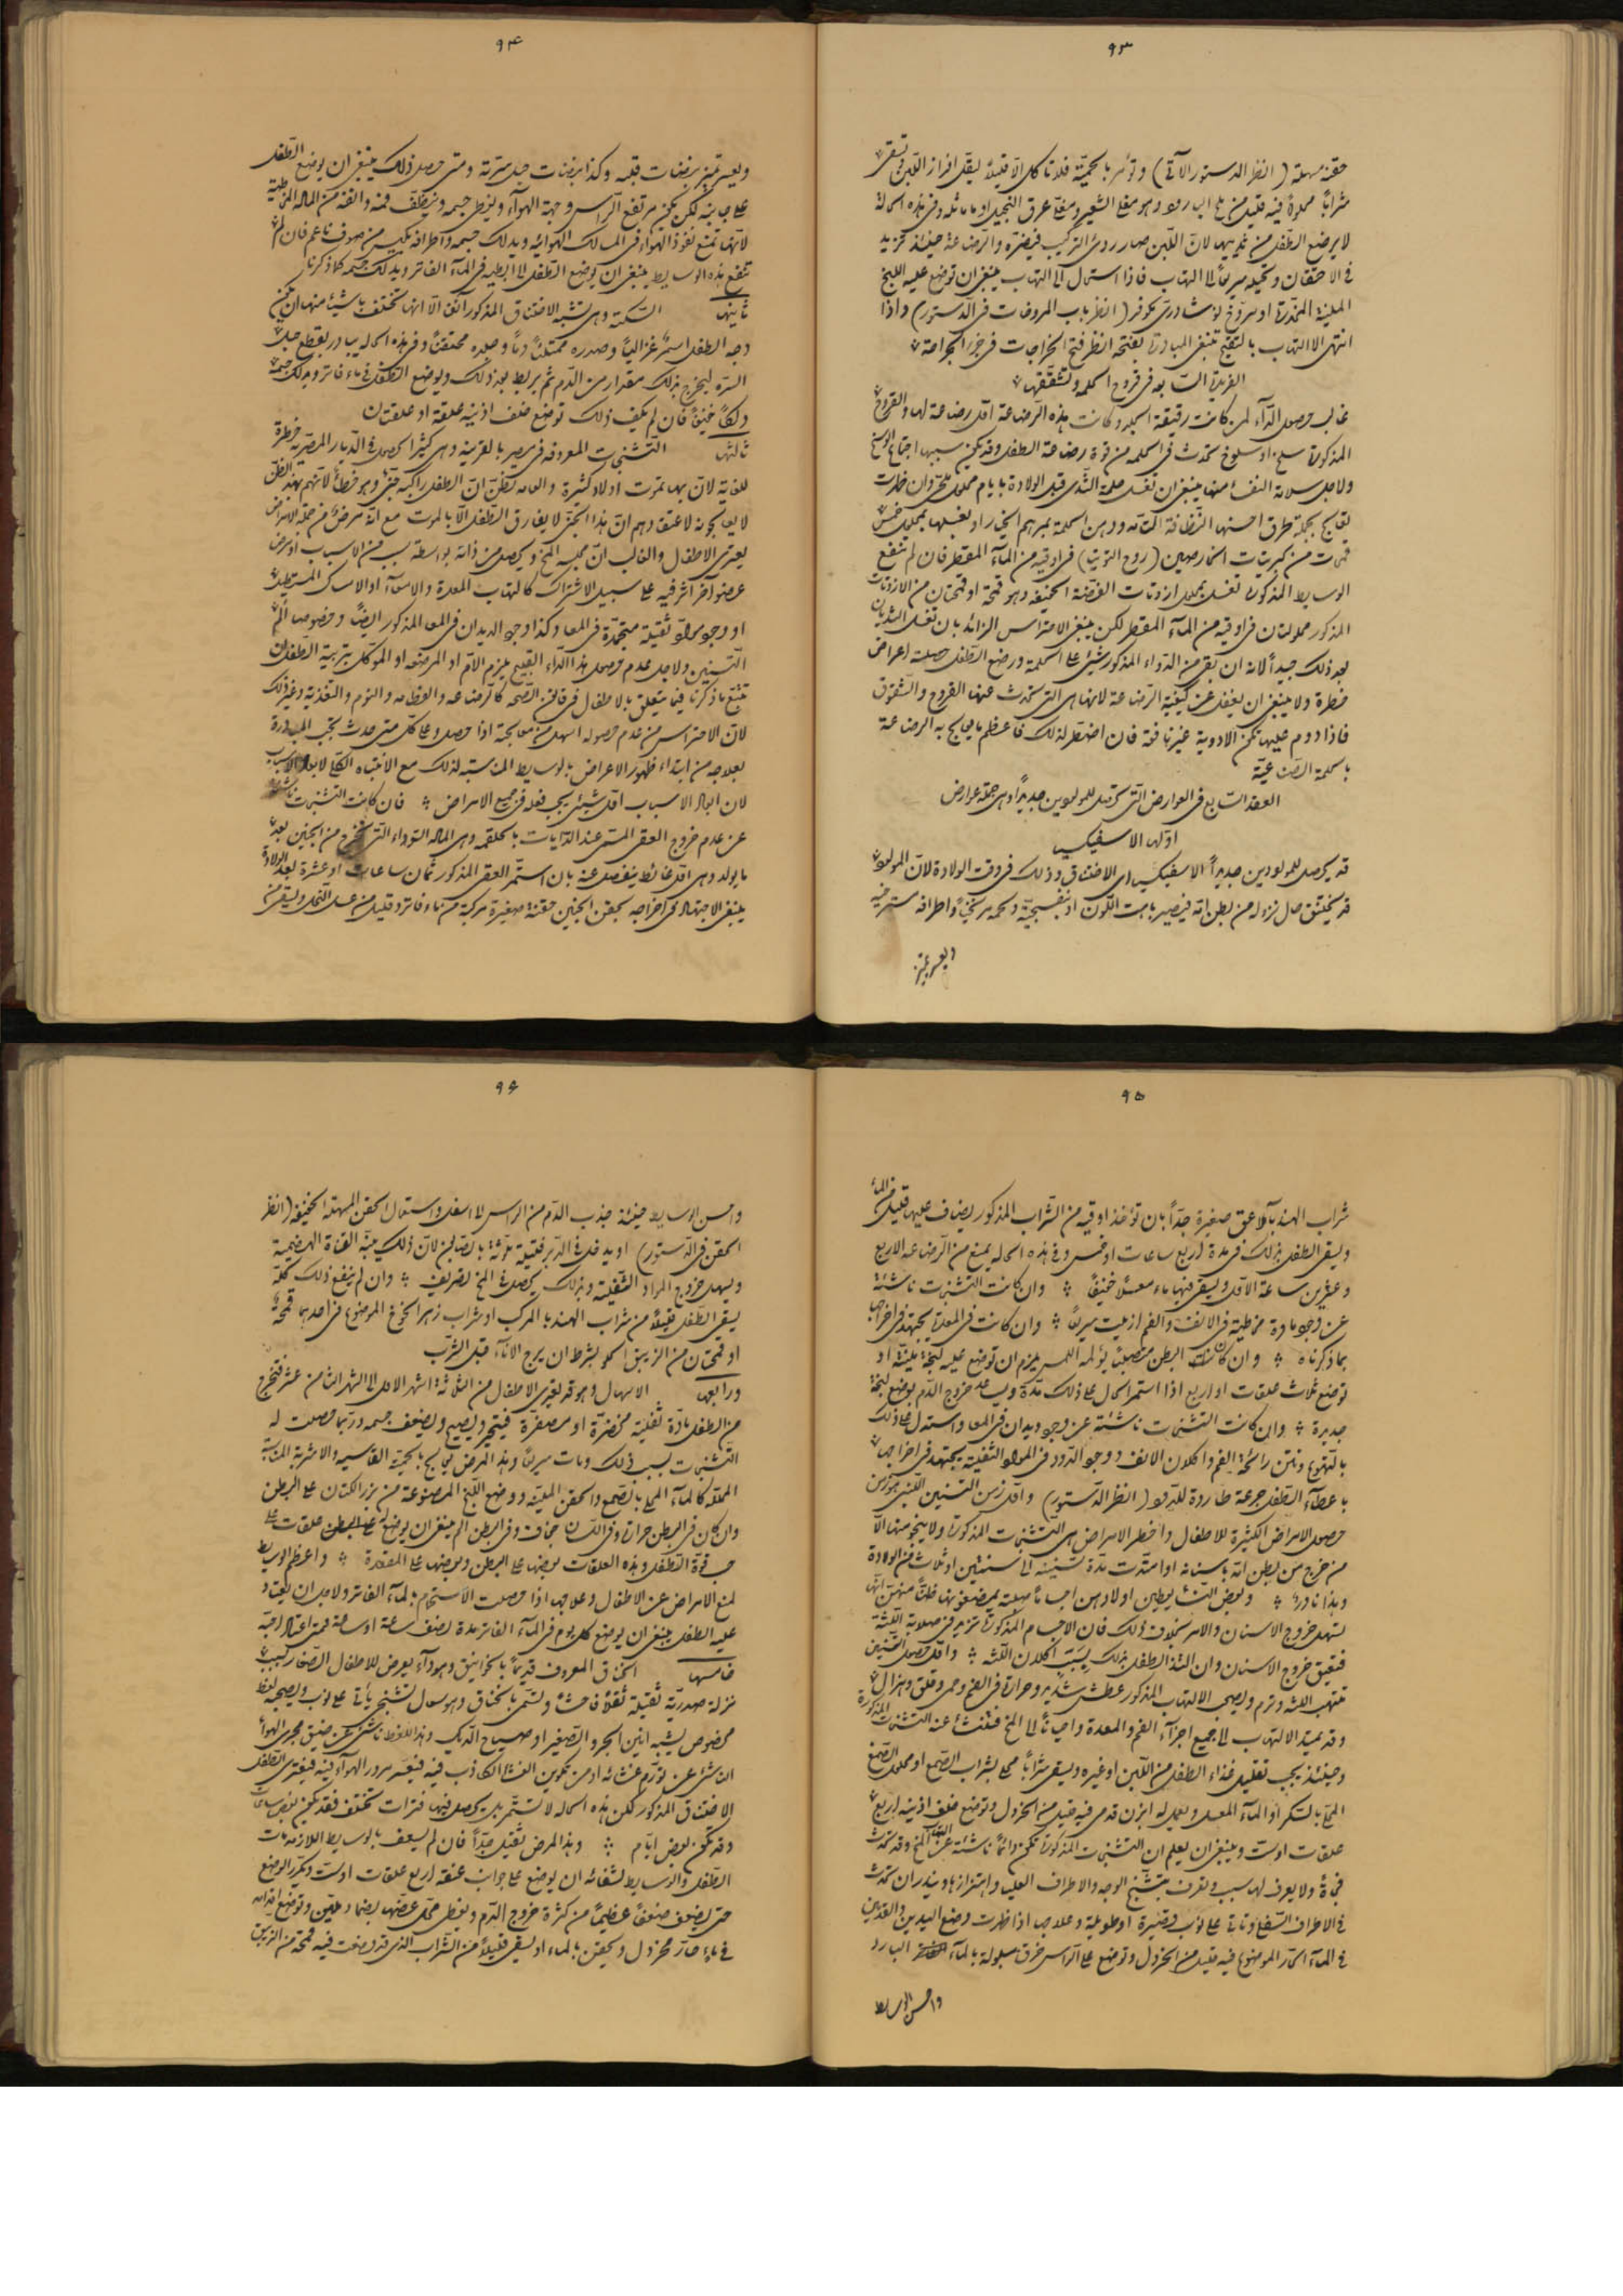 ٩٣
حقنة مسهلة (انظر الدستور الآتى) وتؤمر بالحمية فلا تأكل الا قليلاً ليقل افراز اللبن وتسقى
لا يرضع الطفل من ثدييها لان اللبن صار ردئ التركيب فيضره والرضاعة حينئذ تزيد
فى الاحتقان وتحيله سريعاً الى التهاب فاذا استحال الى التهاب ينبغى ان توضع عليه اللبخ
الملينة المخدرة او مروخ نوشادرى مكوفر (انظر باب المروخات فى الدستور) واذا
انتهى الالتهاب بالتقيح تنبغى المبادرة بفتحه انظر فتح الخراجات فى جزء الجراحة
الفريدة السابعه فى قروح الحلمه وتشققها
غالب حصول الداء لمن كانت رقيقة الجلد وكانت هذه الرضاعة اول رضاعة لها والقروح
المذكورة سلخ او سلوخ تحدث فى الحلمه من قوة رضاعة الطفل وقد يكون سببها اجتماع الوسخ
ولاجل سلامة النفساء منها ينبغى ان تغسل حلمة الثدى قبل الولادة بايام
تعالج بجملة طرق احسنها النظافة التامه ودهن الحلمة بمرهم الخيار او بغسلها بمحلول خمس
قمحات من كبريتات الخارصين (روح التوتيا) فى اوقيه من الماء المقطر فان لم تنفع
الوسايط المذكورة تغسل بمحلول ازوتات الفضة الخفيفه وهو قمحة او قمحتان من الازوتات
المذكور محلولتان فى اوقيه من الماء المقطر لكن ينبغى الاحتراس الزائد بان تغسل الثديان
بعد ذلك جيداً لانه ان بقى من الدواء المذكور شيئ على الحلمة ورضع الطفل حصلت اعراض
خطرة ولا ينبغى ان يغفل عن كيفية الرضاعة لانها هى التى تحدث عنها القروح والشقوق
فاذا دووم عليها تكون الادوية غير نافعة فان اضطر لذلك فاعظم ما يعالج به الرضاعة
بالحلمة الصناعية
العقد السابع فى العوارض التى تحصل للمولودين جديداً وهى جملة عوارض
اولها الاسفيكسيا
قد يحصل للمولودين جديداً الاسفيكسيا اى الاختناق وذلك فى وقت الولادة لان المولود
قد يختنق حال نزوله من بطن امه فيصير باهت اللون او بنفسجيه ولحمه مرتخياً واطرافه مسترخيه
ويعسر تميز
٩٤
ويعسر تميز نبضات قلبه وكذا نبضات حبل سرته ومتى حصل ذلك ينبغى ان يوضع الطفل
على جانبه لكن يكون مرتفع الرأس وجهة الهوآء ويغطى جسمه وينظف فمه وانفه من المادة المخاطية
لانها تمنع نفوذ الهواء فى المسالك الهوائيه ويدلك جسمه واطرافه بكيس من صوف ناعم فان لم
تنفع هذه الوسايط ينبغى ان يوضع الطفل الى ابطيه فى الماء الفاتر ويدلك جسمه كما ذكرنا
ثانيها السكتة وهى تشبه الاختناق المذكور انفا الا انها تختلف باشياء منها ان يكون
وجه الطفل اسمر غزالياً وصدره ممتلئاً دماً وجلده محتقناً وفى هذه الحاله يبادر بقطع حبل
السره ليخرج بذلك مقدار من الدم ثم يربط بعد ذلك ويوضع الطفل فى ماء فاتر ويدلك جسمه
دلكاً خفيفاً فان لم يكف ذلك توضع خلف اذنيه علقة او علقتان
ثالثها التشنجات المعروفه فى مصر بالقرينه وهى كثيرا الحصول فى الديار المصرية خطرة
للغاية لان بها تموت اولاد كثيرة والعامه تظن ان الطفل راكبه جنى وهو خطأ لانهم بهذا الظن
لا يعالجونه لاعتقادهم ان هذا الجنى لا يفارق الطفل الا بالموت مع انه مرض من جملة الامراض
يعترى الاطفال والغالب ان مجلسه المخ ويحصل من ذاته بواسطة سبب من الاسباب او مرض
عضو آخر اثر فيه على سبيل الاشتراك كالتهاب المعدة والامعآء او الامساك المستطيل
او وجود مواد ثفلية متجمدة فى المعا وكذا وجود الديدان فى المعا المذكور ايضاً وخصوصا الم
التسنين ولاجل عدم حصول هذا الداء القبيح يلزم الام او المرضعه او الموكل بتربية الطفل ان
تتبع ما ذكرنا فيما يتعلق بالاطفال فى قانون الصحه كالرضاعه والفطامه والنوم والتغذية وغير ذلك
لان الاحتراس من عدم حصوله اسهل من معالجته اذا حصل وعلى كل متى حدث تجب المبادرة
بعلاجه من ابتداء ظهور الاعراض بالوسايط المناسبة لذلك مع الانتباه الكلى لابعاد الاسباب
لان ابعاد الاسباب اول شيئ يجب فعله فى جميع الامراض فان كانت التشنجات ناشئة
عن عدم خروج العقى المسمى عند الدايات بالحلقمه وهى الماده السوداء التى تخرج من الجنين بعد
ما يولد وهى اول غائط ينفصل عنه بان استمر العقى المذكور ثمان ساعات او عشرة بعد الولادة
ينبغى الاجتهاد فى اخراجه بحقن الجنين حقنة صغيرة مركبة من ماء فاتر وقليل من عسل النحل ويسقى من
٩٥
شراب الهندبا بملاعق صغيرة جداً بان تؤخذ اوقيه من الشراب المذكور يضاف عليها قليل من الماء
ويسقى الطفل بذلك فى مدة اربع ساعات او خمس وفى هذه الحاله يمنع من الرضاعه الاربع
وعشرين ساعة الاول ويسقى فيها ماء معسلاً خفيفاً وان كانت التشنجات ناشئة
عن وجود مادة مخاطية فى الانف والفم ازيلت سريعاً وان كانت فى المعدة يجتهد فى اخراجها
بما ذكرناه وان كان البطن متصلباً يؤلمه اللمس يلزم ان توضع عليه لبخة ملينة او
توضع ثلاث علقات او اربع اذا استمر الحال على ذلك مدة ويساعد خروج الدم بوضع لبخة
جديدة وان كانت التشنجات ناشئة عن وجود ديدان فى المعا واستدل على ذلك
بالتهوع ونتن رائحة الفم واكلان الانف ووجود الدود فى المواد الثفلية يجتهد فى اخراجها
باعطاء الطفل جرعة طاردة للدود (انظر الدستور) واول زمن التسنين اللبنى هو زمن
حصول الامراض الكثيرة للاطفال واخطر الامراض هى التشنجات المذكورة ولا ينجو منها الا
من خرج من بطن امه باسنانه او امتدت مدة تسنينه الى سنتين او ثلاث من الولادة
وهذا نادر وبعض النساء يعطين اولادهن اجساماً صلبة يمضغونها ظناً منهن انها
تسهل خروج الاسنان والامر بخلاف ذلك فان الاجسام المذكورة تزيد فى صلابة اللثة
فتعيق خروج الاسنان وان التذ الطفل بذلك بسبب اكلان اللثه واول حصول التسنين
تلتهب اللثه وترم ويصحب الالتهاب المذكور عطش شديد وحرارة فى الفم وحمى وقلق وهزال
وقد يمتد الالتهاب الى جميع اجزآء الفم والمعدة واحياناً الى المخ فتنشأ عنه التشنجات المذكورة
وحينئذ يجب تقليل غذاء الطفل من اللبن او غيره ويسقى شراباً محلى بشراب الصمغ او محلول الصمغ
المحلى بالسكر او الماء المعسل ويعمل له ابزن قدمى فيه قليل من الخردل وتوضع خلف اذنيه اربع
علقات او ست وينبغى ان يعلم ان التشنجات المذكورة تكون دائماً ناشئة عن التهاب المخ وقد تحدث
فجأة ولا يعرف لها سبب وتعرف بتشنج الوجه والاطراف العليا واهتزازها ويندر ان تحدث
فى الاطراف السفلى وتأتى على نوب قصيرة او طويلة وعلاجها اذا ظهرت وضع اليدين والقدمين
فى الماء الحار الموضوع فيه قليل من الخردل وتوضع على الرأس خرق مبلولة بالماء البارد
واحسن الوسايط
٩٦
واحسن الوسايط حينئذ جذب الدم من الراس الى اسفل واستعمال الحقن المسهلة الخفيفة (انظر
الحقن فى الدستور) او يدخل فى الدبر فتيلة ملوثة بالصابون لان ذلك ينبه القناة الهضمية
ويسهل خروج المواد الثفلية وبذلك يحصل فى المخ تصريف وان لم ينفع ذلك كله
يسقى الطفل قليلاً من شراب الهندبا المركب او شراب زهر الخوخ الموضوع فى احدهما قمحة
او قمحتان من الزيبق الحلو بشرط ان يرج الاناء قبل الشرب
ورابعها الاسهال وهو قد يعترى الاطفال من الثلاثة اشهر الاول الى الشهر الثامن عشر فتخرج
من الطفل مادة ثفلية مخضرة او مصفرة فيتضجر ويصيح ويضعف جسمه وربما حصلت له
التشنجات بسبب ذلك ومات سريعاً وهذا المرض يعالج بالحمية القاسيه والاشربة المناسبة
المحلاة كالماء المحلى بالصمغ والحقن الملينه ووضع اللبخ المصنوعة من بزر الكتان على البطن
وان كان فى البطن حرارة وفى اللسان جفاف وفى البطن الم ينبغى ان يوضع له علقات على
حسب قوة الطفل وهذه العلقات بعضها على البطن وبعضها على المقعدة واعظم الوسايط
لمنع الامراض عن الاطفال وعلاجها اذا حصلت الاستحمام بالماء الفاتر ولاجل ان يعتاد
عليه الطفل ينبغى ان يوضع كل يوم فى الماء الفاتر مدة نصف ساعة او ساعة
خامسها الخناق المعروف قديماً بالخوانيق وهو داء يعرض للاطفال الصغار بسبب
نزلة صدريه ثقيلة ثقلاً فاحشاً ويسمى بالخناق وهو سعال تشنجى يأتى على نوب ويصحبه لغط
مخصوص يشبه انين الجرو الصغير او صياح الديك وهذا اللغط ناشئ عن ضيق مجرى الهواء
الناشئ عن تورم غشائه او من تكوين الغشا الكاذب فيه فيعسر مرور الهوآء فيه فيعترى الطفل
الاختناق المذكور لكن هذه الحاله لا تستمر بل يحصل فيها فترات تختلف فقد تكون بعض ساعات
وقد تكون بعض ايام وهذا المرض ثقيل جداً فان لم يسعف بالوسايط اللازمه مات
الطفل والوسايط لشفائه ان يوضع على جوانب عنقه اربع علقات او ست ويكرر الوضع
حتى يضعف ضعفاً عظيماً من كثرة خروج الدم ويغطى محل عضها بضماد ملين وتوضع اقدامه
فى ماء حار مخردل ويحقن بالماء او يسقى قليلاً من الشراب الذى قد وضعت فيه قمحة من الزيبق